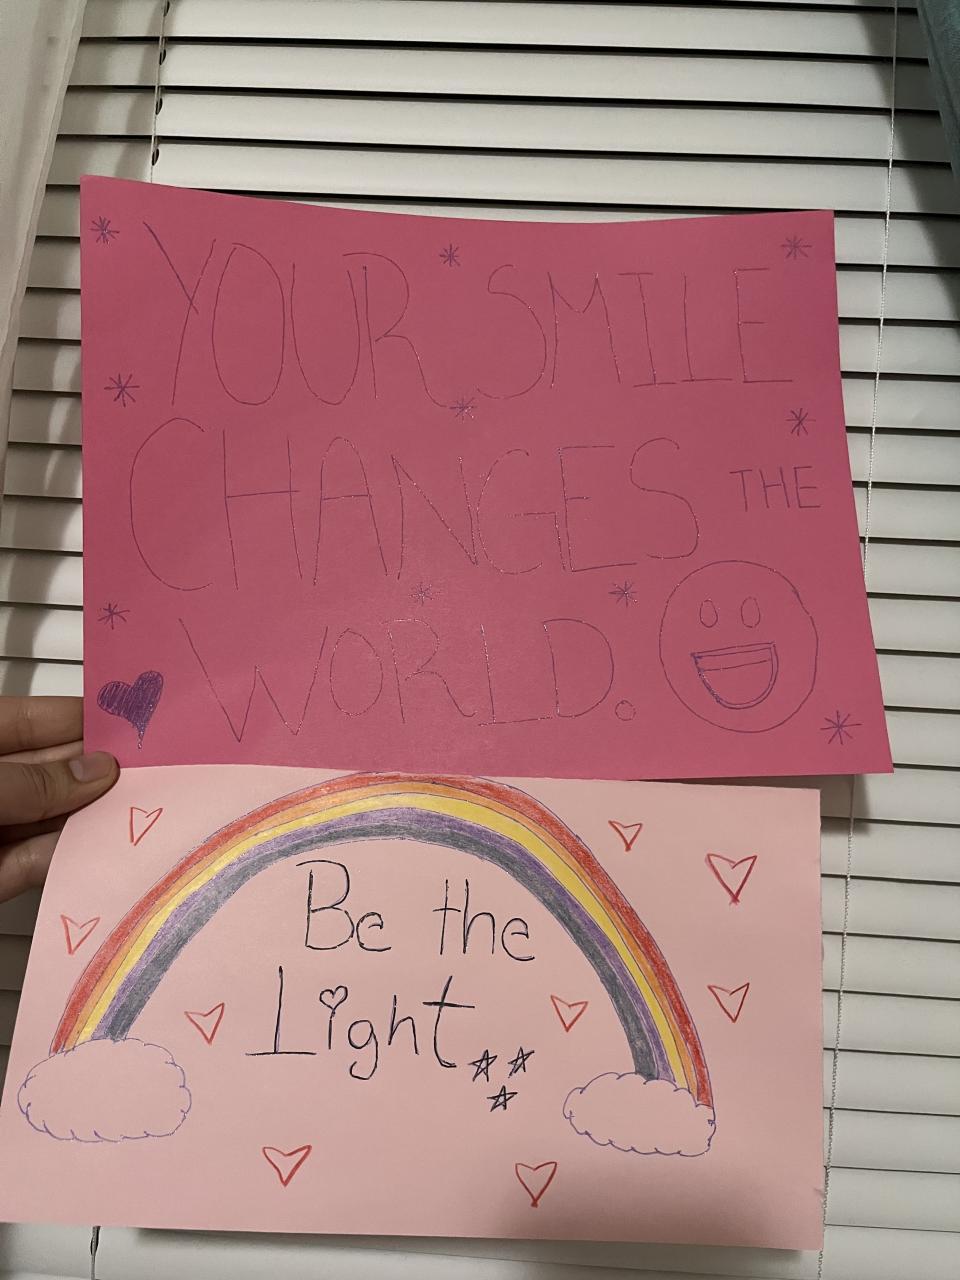 YOUR SMILE
CHANGES THE
WORLD.
Be the
Light